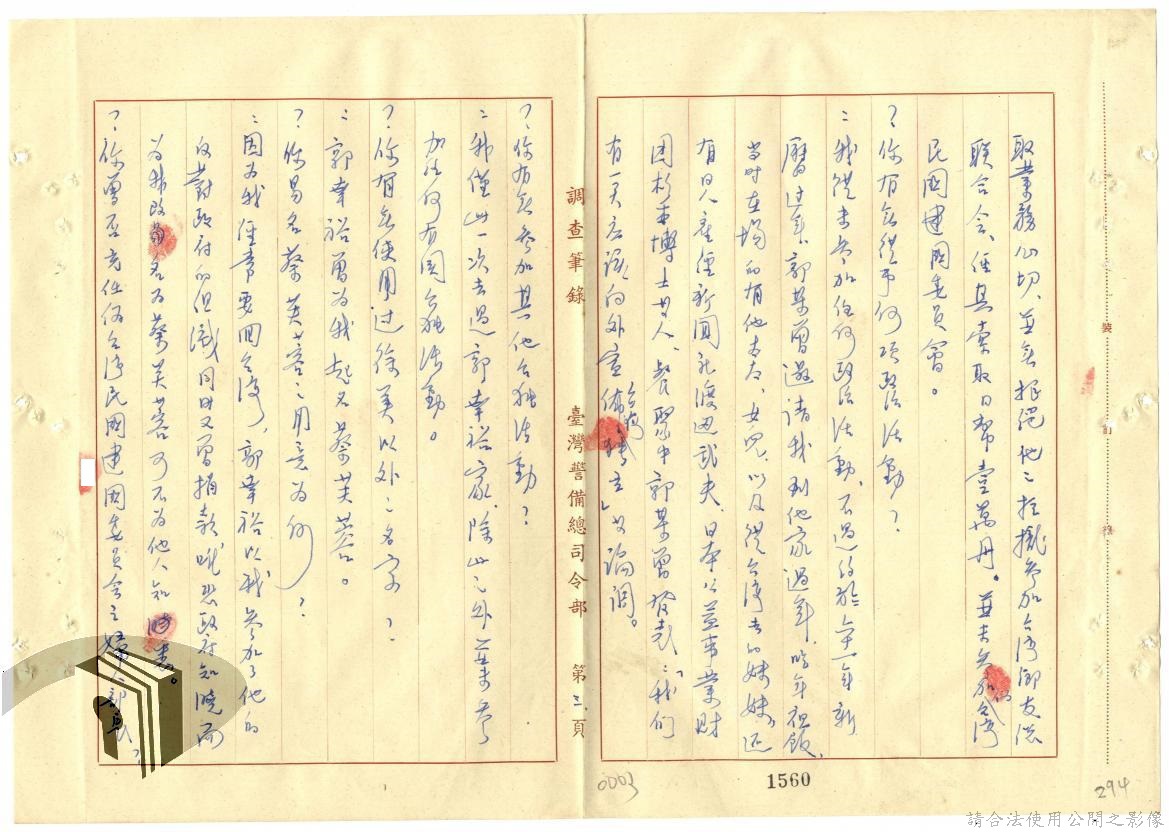 取業務心切、並無拒絕他之招攬參加台灣鄉友
聯合會、但其索取日幣壹萬円。並未參加台灣
民國建國委員會。
？你有無從事何項政治活動？
：我從未參加任何政治活動、不過約於六十一年新
曆過年、郭某曾邀請我到他家過年、吃年夜飯、
當時在場的有他太太、女兒、以及從台灣去的妹妹、還
有日人產經新聞社渡邊武夫、日本公益事業財
團杉本博士等人、餐聚中郭某曾發表：「我們
有一天應該向外宣佈台灣獨立」之論調。
調查筆錄 臺灣警備總司令部 第三頁
？你有無參加其他台獨活動？
：我僅此一次去過郭幸裕家、除此之外並未參
加任何有關台獨活動。
？你有無使用過徐美以外之名字？
：郭幸裕曾為我起名蔡芙蓉。
？你易名蔡芙蓉之用意為何？
：因為我經常要回台灣，郭幸裕以我參加了他的
反對政府的組織同時又曾捐款、唯恐政府知曉而
為我改名為蔡芙蓉可不為他人知
？你曾否充任台灣民國建國委員會之婦人部長？
裝
訂
線
1560
0003
294
請合法使用公開之影像